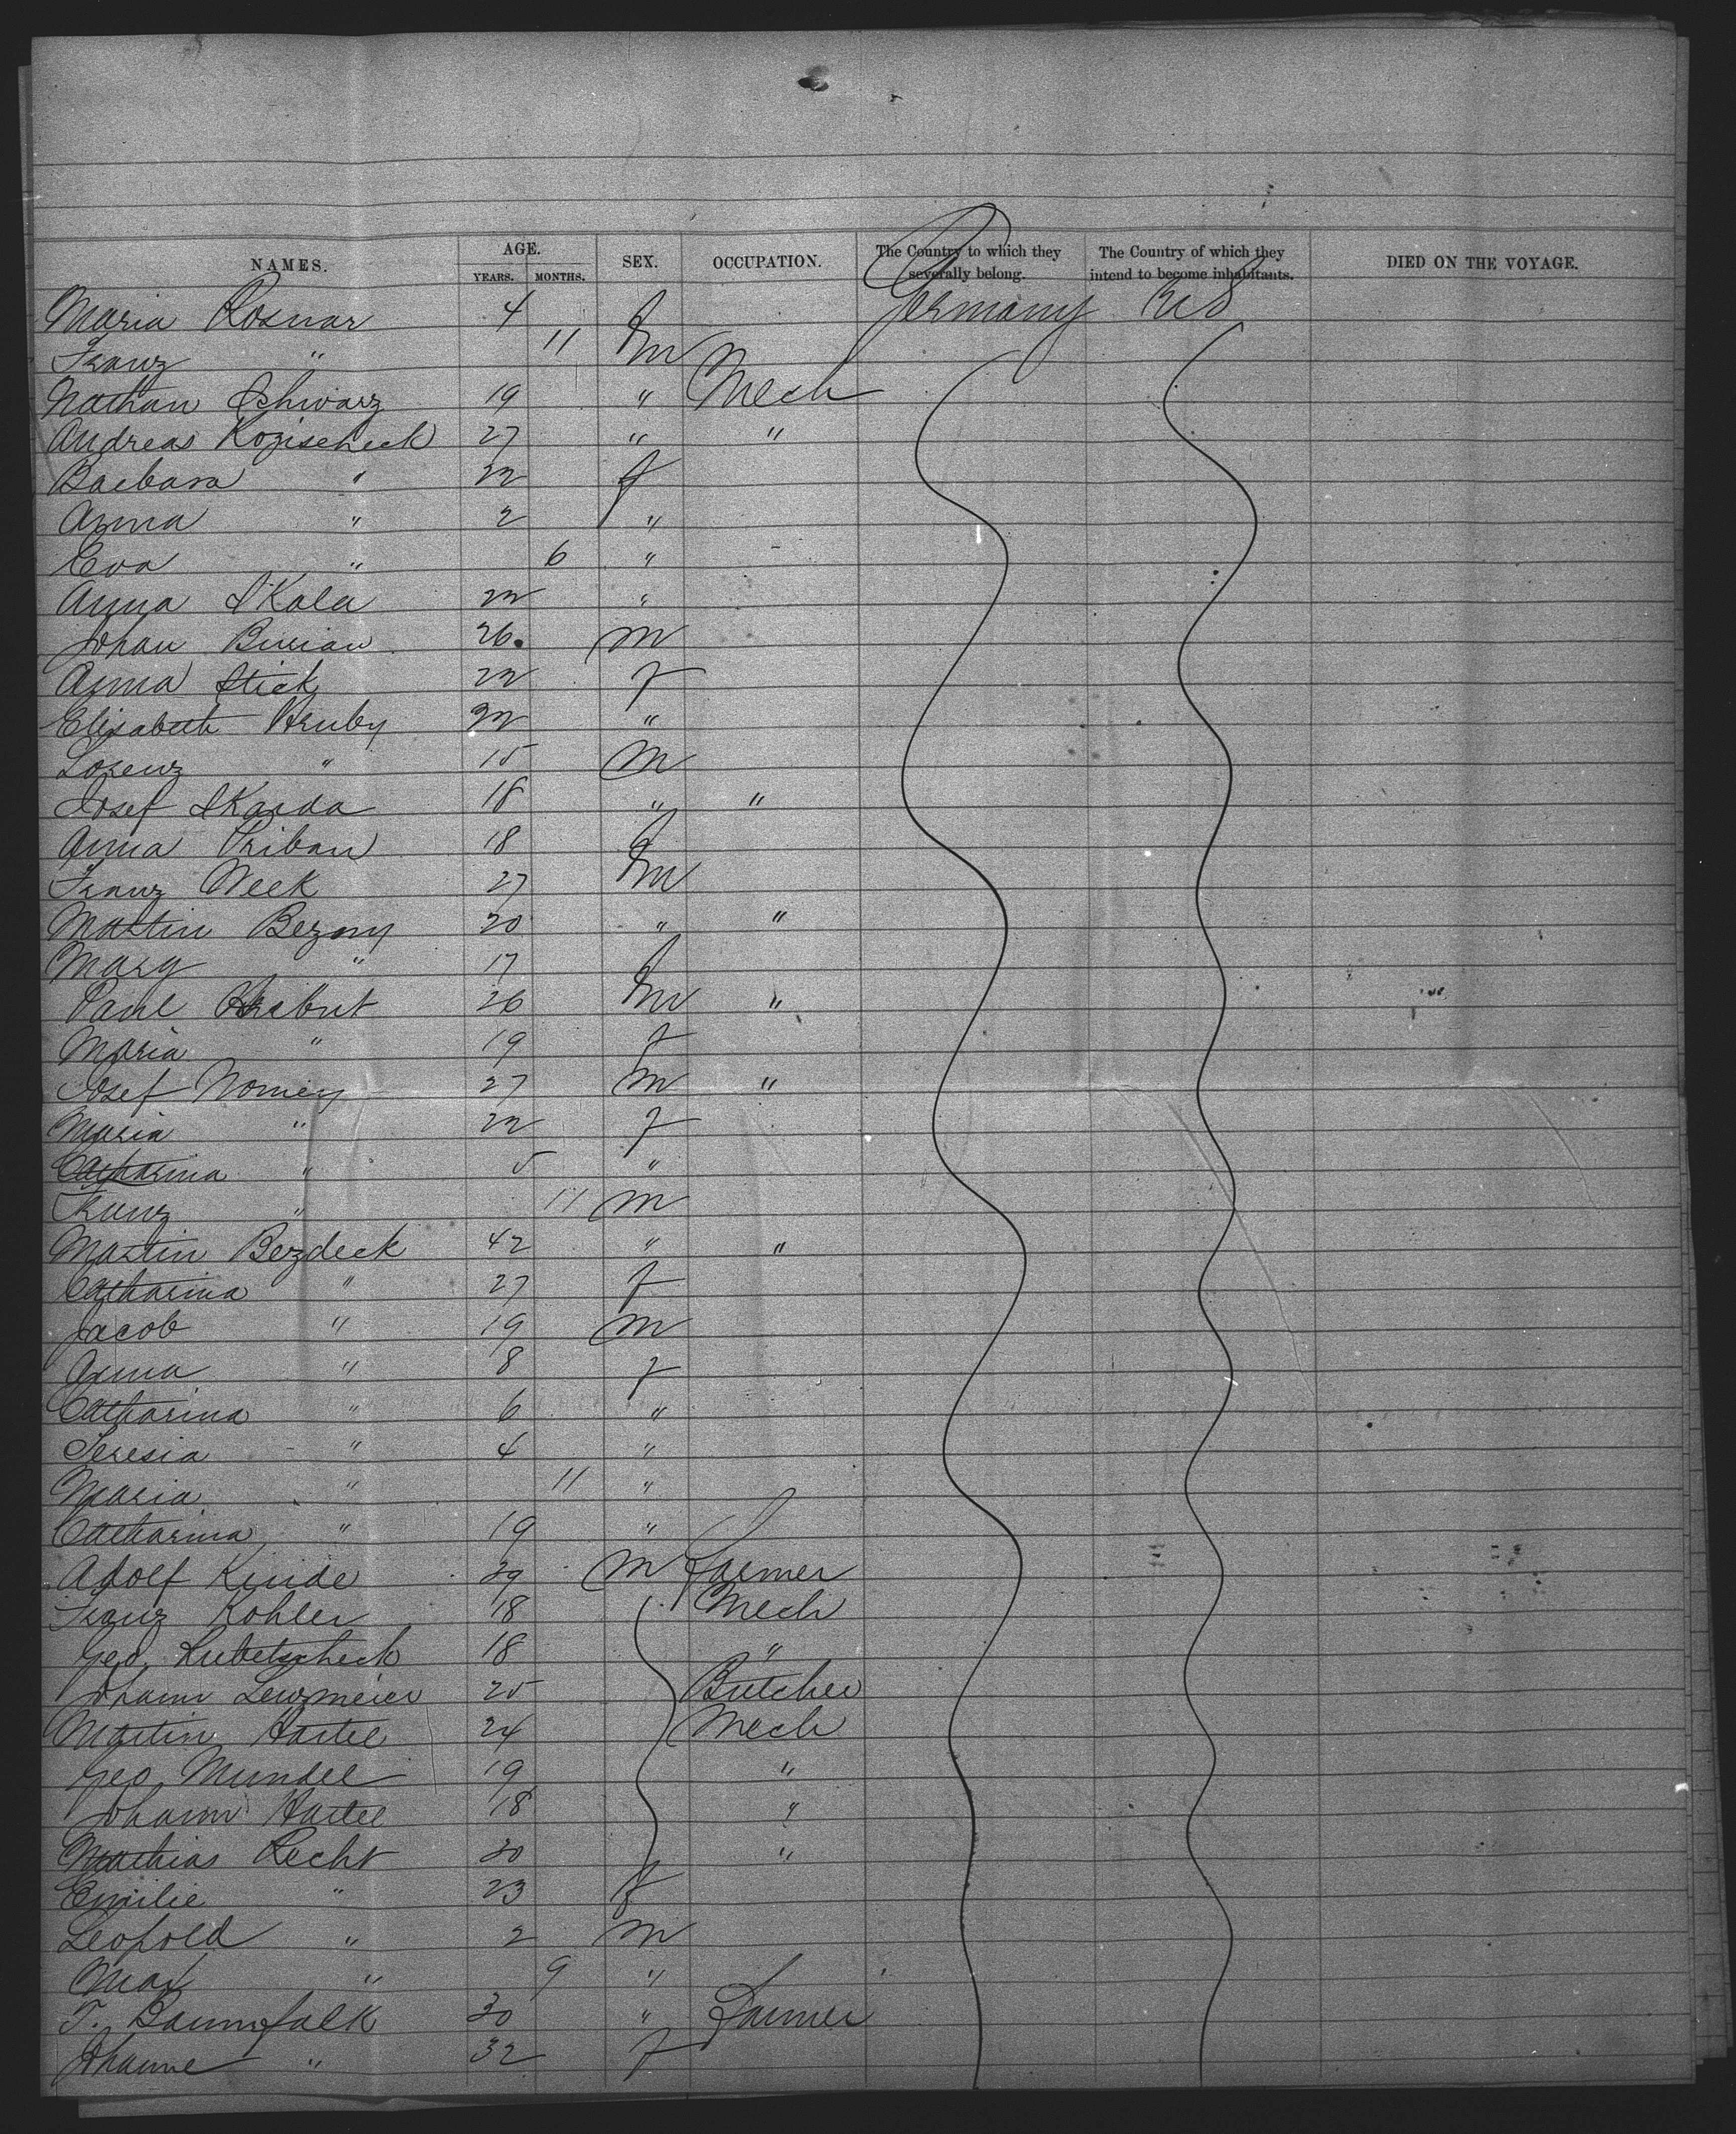 NAMES. AGE. YEARS. MONTHS. SEX. OCCUPATION. The Country to which they severally belong. The Country of which they intend to become inhabitants. DIED ON THE VOYAGE.
Maria Rosnar 4 f Germany U S
Franz " 11 m
Nathan Schwarz 19 " Mech
Andreas Kozischeck 27 " "
Barbara " 22 f
Anna " 2 "
Eva " 6 "
Anna Skala 22 "
Johan Burian 26 m
Anna Stick 22 f
Elisabeth Hruby 22 "
Lorenz " 15 m
Josef Skarda 18 " "
Anna Priban 18 f
Franz Week 27 m
Martin Bezony 20 " "
Marg " 17 f
Paul Hrabut 26 m "
Maria " 19 f
Josef Nomey 27 m "
Maria " 22 f
Catharina " 5 "
Franz " 11 m
Martin Bezdeck 42 " "
Catharina " 27 f
Jacob " 19 m
Anna " 8 f
Catharina " 6 "
Teresia " 4 "
Maria " 11 "
Catharina " 19 "
Adolf Kinde 29 m Farmer
Franz Kohler 18 Mech
Geo. Lubetscheck 18 "
Johann Lewmeier 25 Butcher
Martin Hartel 24 Mech
Geo Mundel 19 "
Johann Hartel 18 "
Mathias Lecht 30 "
Emilie " 23 f
Leopold " 2 m
Max " 9 "
T. Baumfalk 30 " Farmer
Johanne " 32 f